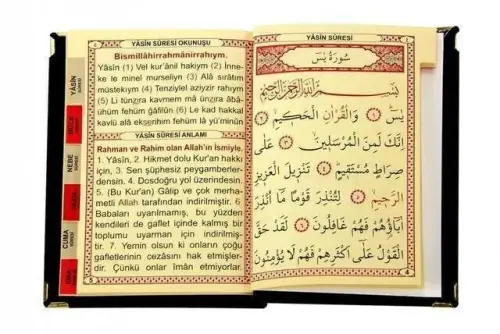 YÂSİN SÛRESİ OKUNUŞU
Bismillâhirrahmânirrahıym.
Yâsîn (1) Vel kur'ânil hakiym (2) İnne-
ke le minel murseliyn (3) Alâ sırâtım
müstekıym (4) Tenziylel aziyzir rahıym
(5) Li tünzira kavmem mâ ünzira âbâ-
ühüm fehüm ğâfilûn (6) Le kad hakkal
kavlü alâ ekserihim fehüm lâ yü'minûn
YÂSÎN SÛRESİ ANLAMI
Rahman ve Rahim olan Allah'ın İsmiyle.
1. Yâsîn, 2. Hikmet dolu Kur'an hakkı
için, 3. Sen şüphesiz peygamberler-
densin. 4. Dosdoğru yol üzerindesin.
5. (Bu Kur'an) Gâlip ve çok merha-
metli Allah tarafından indirilmiştir. 6.
Babaları uyarılmamış, bu yüzden
kendileri de gaflet içinde kalmış bir
toplumu uyarman için indirilmiş-
tir. 7. Yemin olsun ki onların çoğu
gafletlerinin cezasını hak etmişler-
dir. Çünkü onlar îman etmiyorlar.
5
YÂSİN
NEBE
CUMA
YÂSİN SÛRESİ
سُورَةُ يٰسٓ
بِسْمِ اللّٰهِ الرَّحْمٰنِ الرَّحِيمِ
يٰسٓ ﴿١﴾ وَالْقُرْاٰنِ الْحَكِيمِ ﴿٢﴾
اِنَّكَ لَمِنَ الْمُرْسَلِينَ ﴿٣﴾ عَلٰى
صِرَاطٍ مُسْتَقِيمٍ ﴿٤﴾ تَنْزِيلَ الْعَزِيزِ
الرَّحِيمِ ﴿٥﴾ لِتُنْذِرَ قَوْمًا مَٓا اُنْذِرَ
اٰبَٓاؤُهُمْ فَهُمْ غَافِلُونَ ﴿٦﴾ لَقَدْ حَقَّ
الْقَوْلُ عَلٰٓى اَكْثَرِهِمْ فَهُمْ لَا يُؤْمِنُونَ
4